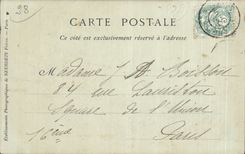 28
CARTE POSTALE
Ce côté est exclusivement réservé à l'adresse
Madame J. A. Boisson
84 rue Lauriston
Square de l'Union
16ème
Paris
Etablissements Photographiques de NEURDEIN Frères. — Paris